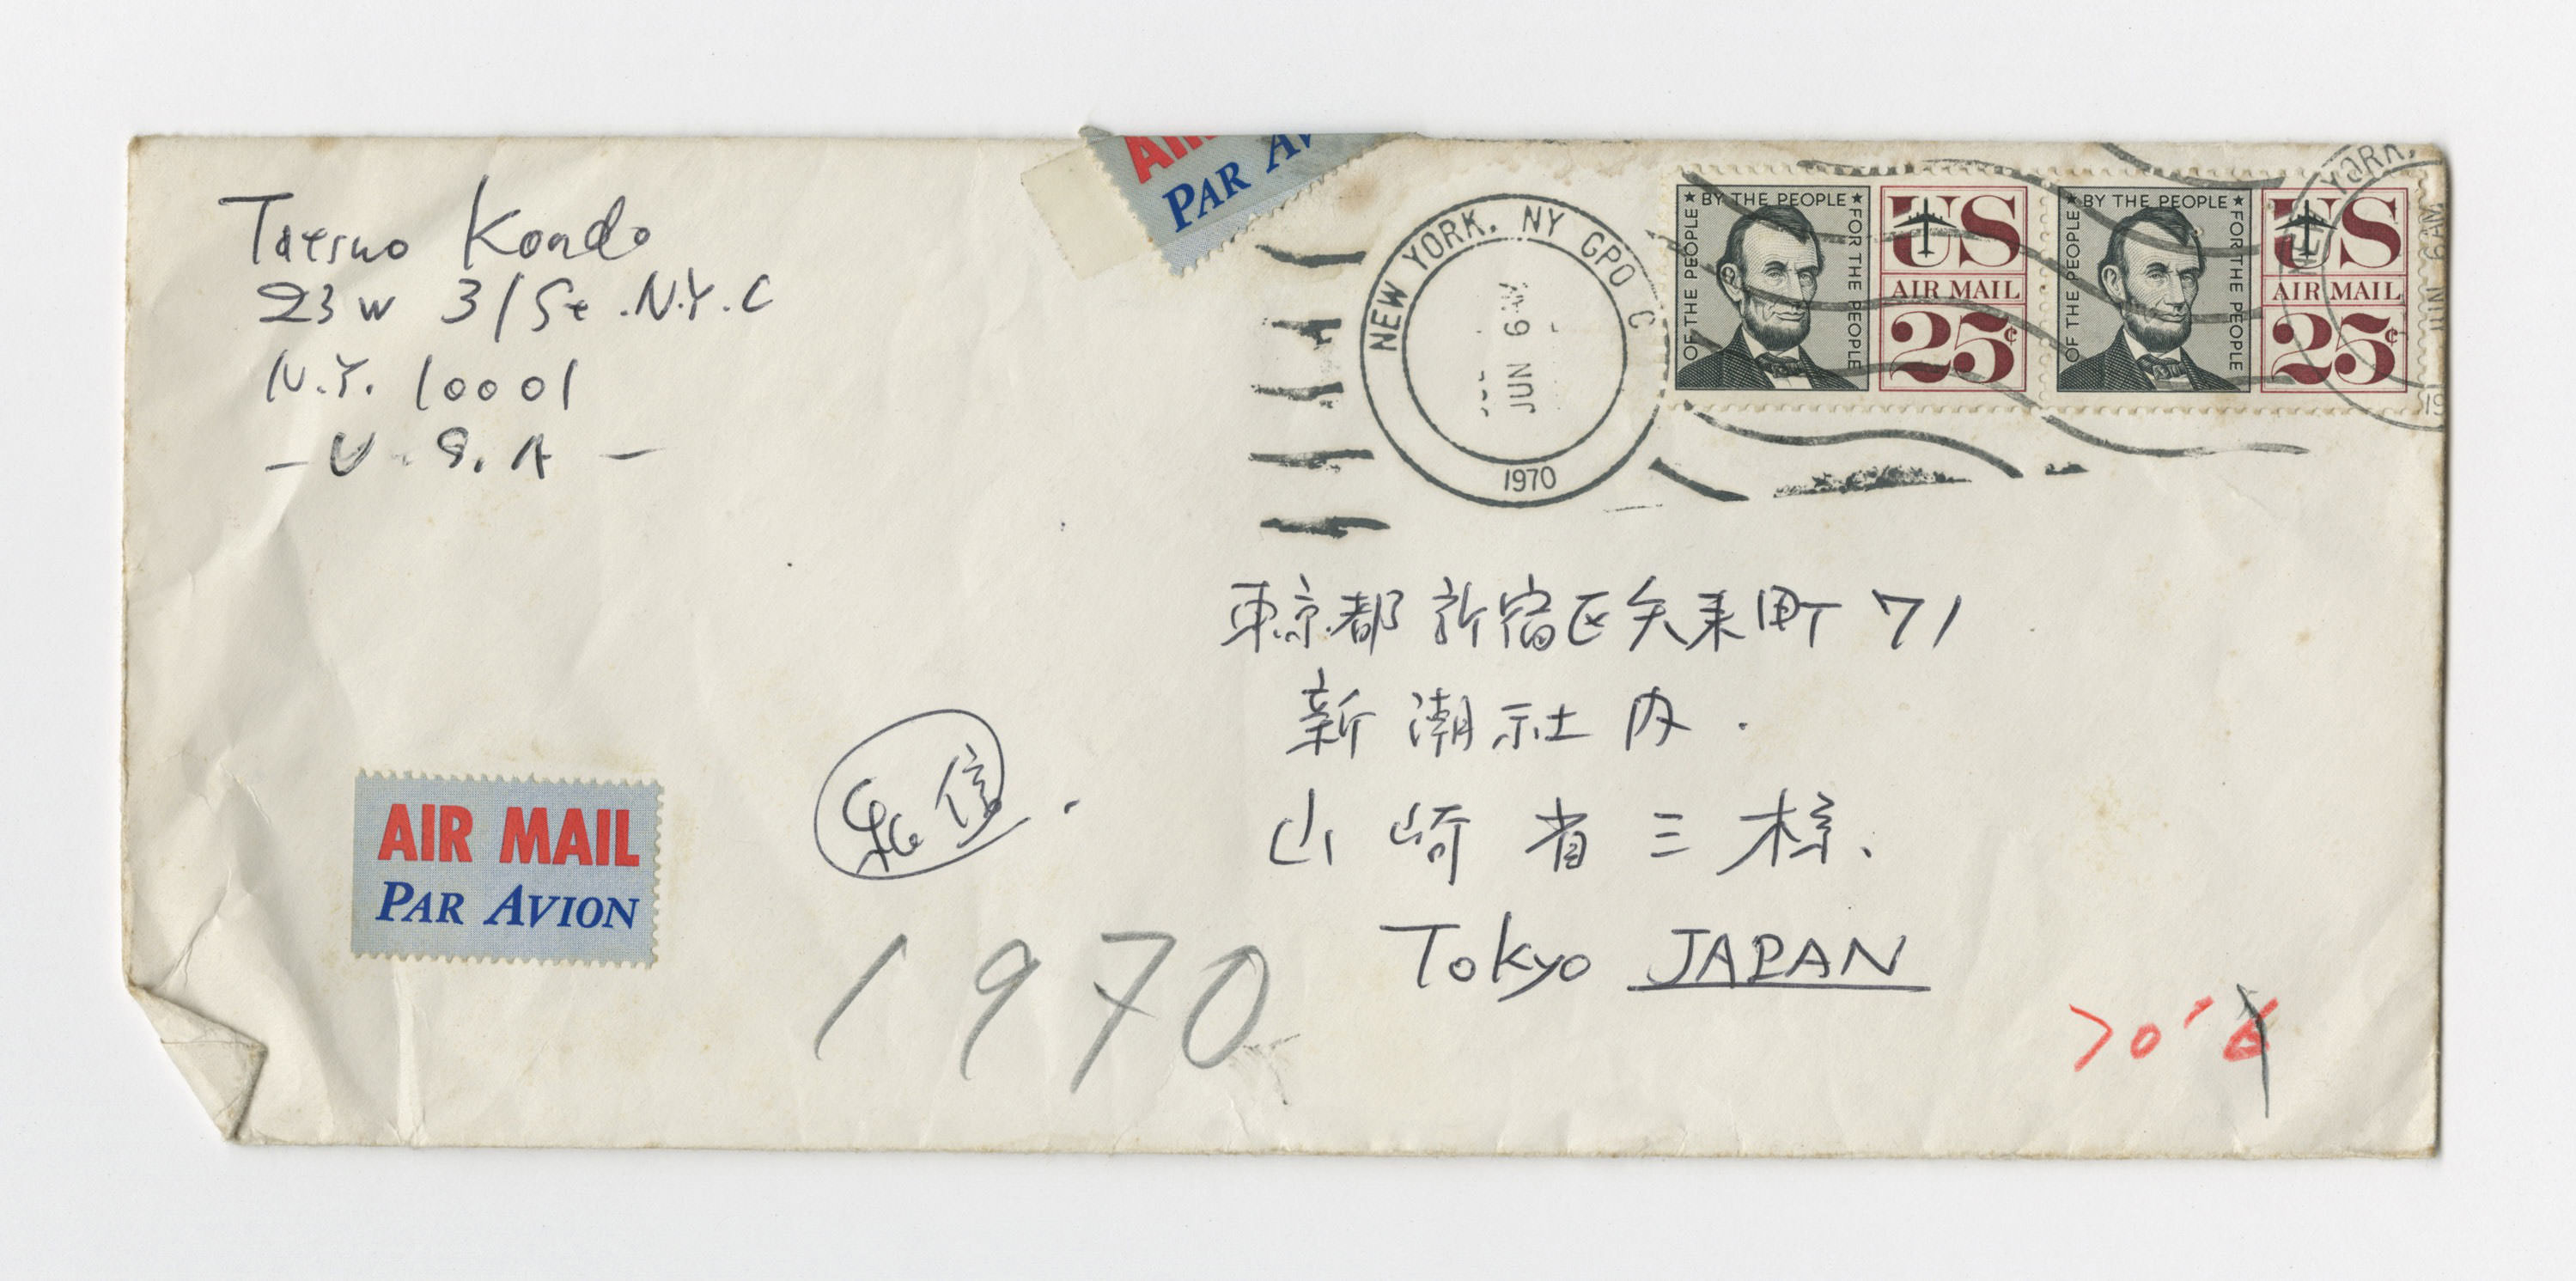 Tatsuo Kondo
23 W 31 St. N.Y.C
N.Y. 10001
- U.S.A -
PAR AV
NEW YORK, NY GPO C
JUN 6 AM
1970
OF THE PEOPLE ★ BY THE PEOPLE ★ FOR THE PEOPLE
US
AIR MAIL
25¢
OF THE PEOPLE ★ BY THE PEOPLE ★ FOR THE PEOPLE
US
AIR MAIL
25¢
YORK,
JUN 6 AM
19
東京都新宿区矢来町 71
新潮社内.
山崎省三様、
Tokyo JAPAN
AIR MAIL
PAR AVION
1970